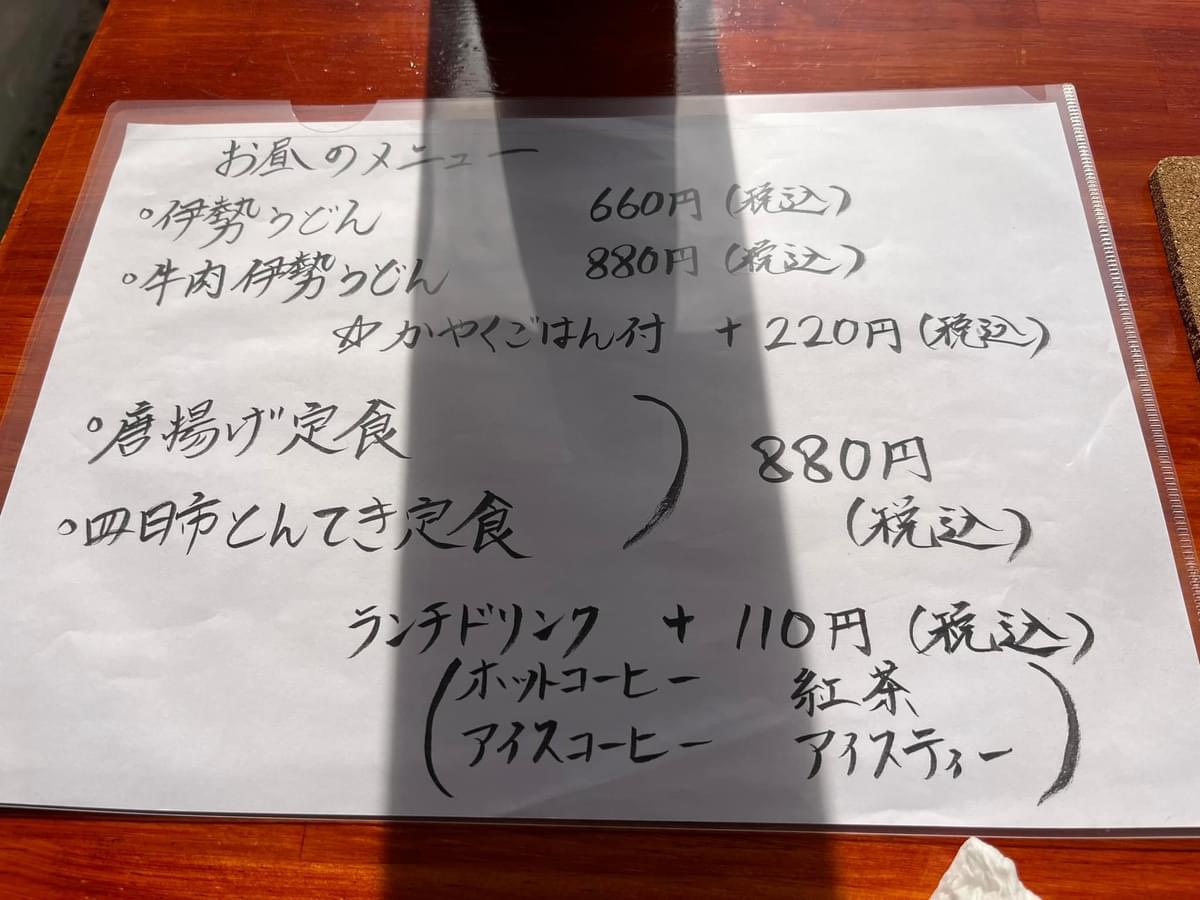 お昼のメニュー
○伊勢うどん 660円(税込)
○牛肉伊勢うどん 880円(税込)
☆かやくごはん付 +220円(税込)
○唐揚げ定食
○四日市とんてき定食 ) 880円
(税込)
ランチドリンク +110円(税込)
(ホットコーヒー 紅茶
アイスコーヒー アイスティー)